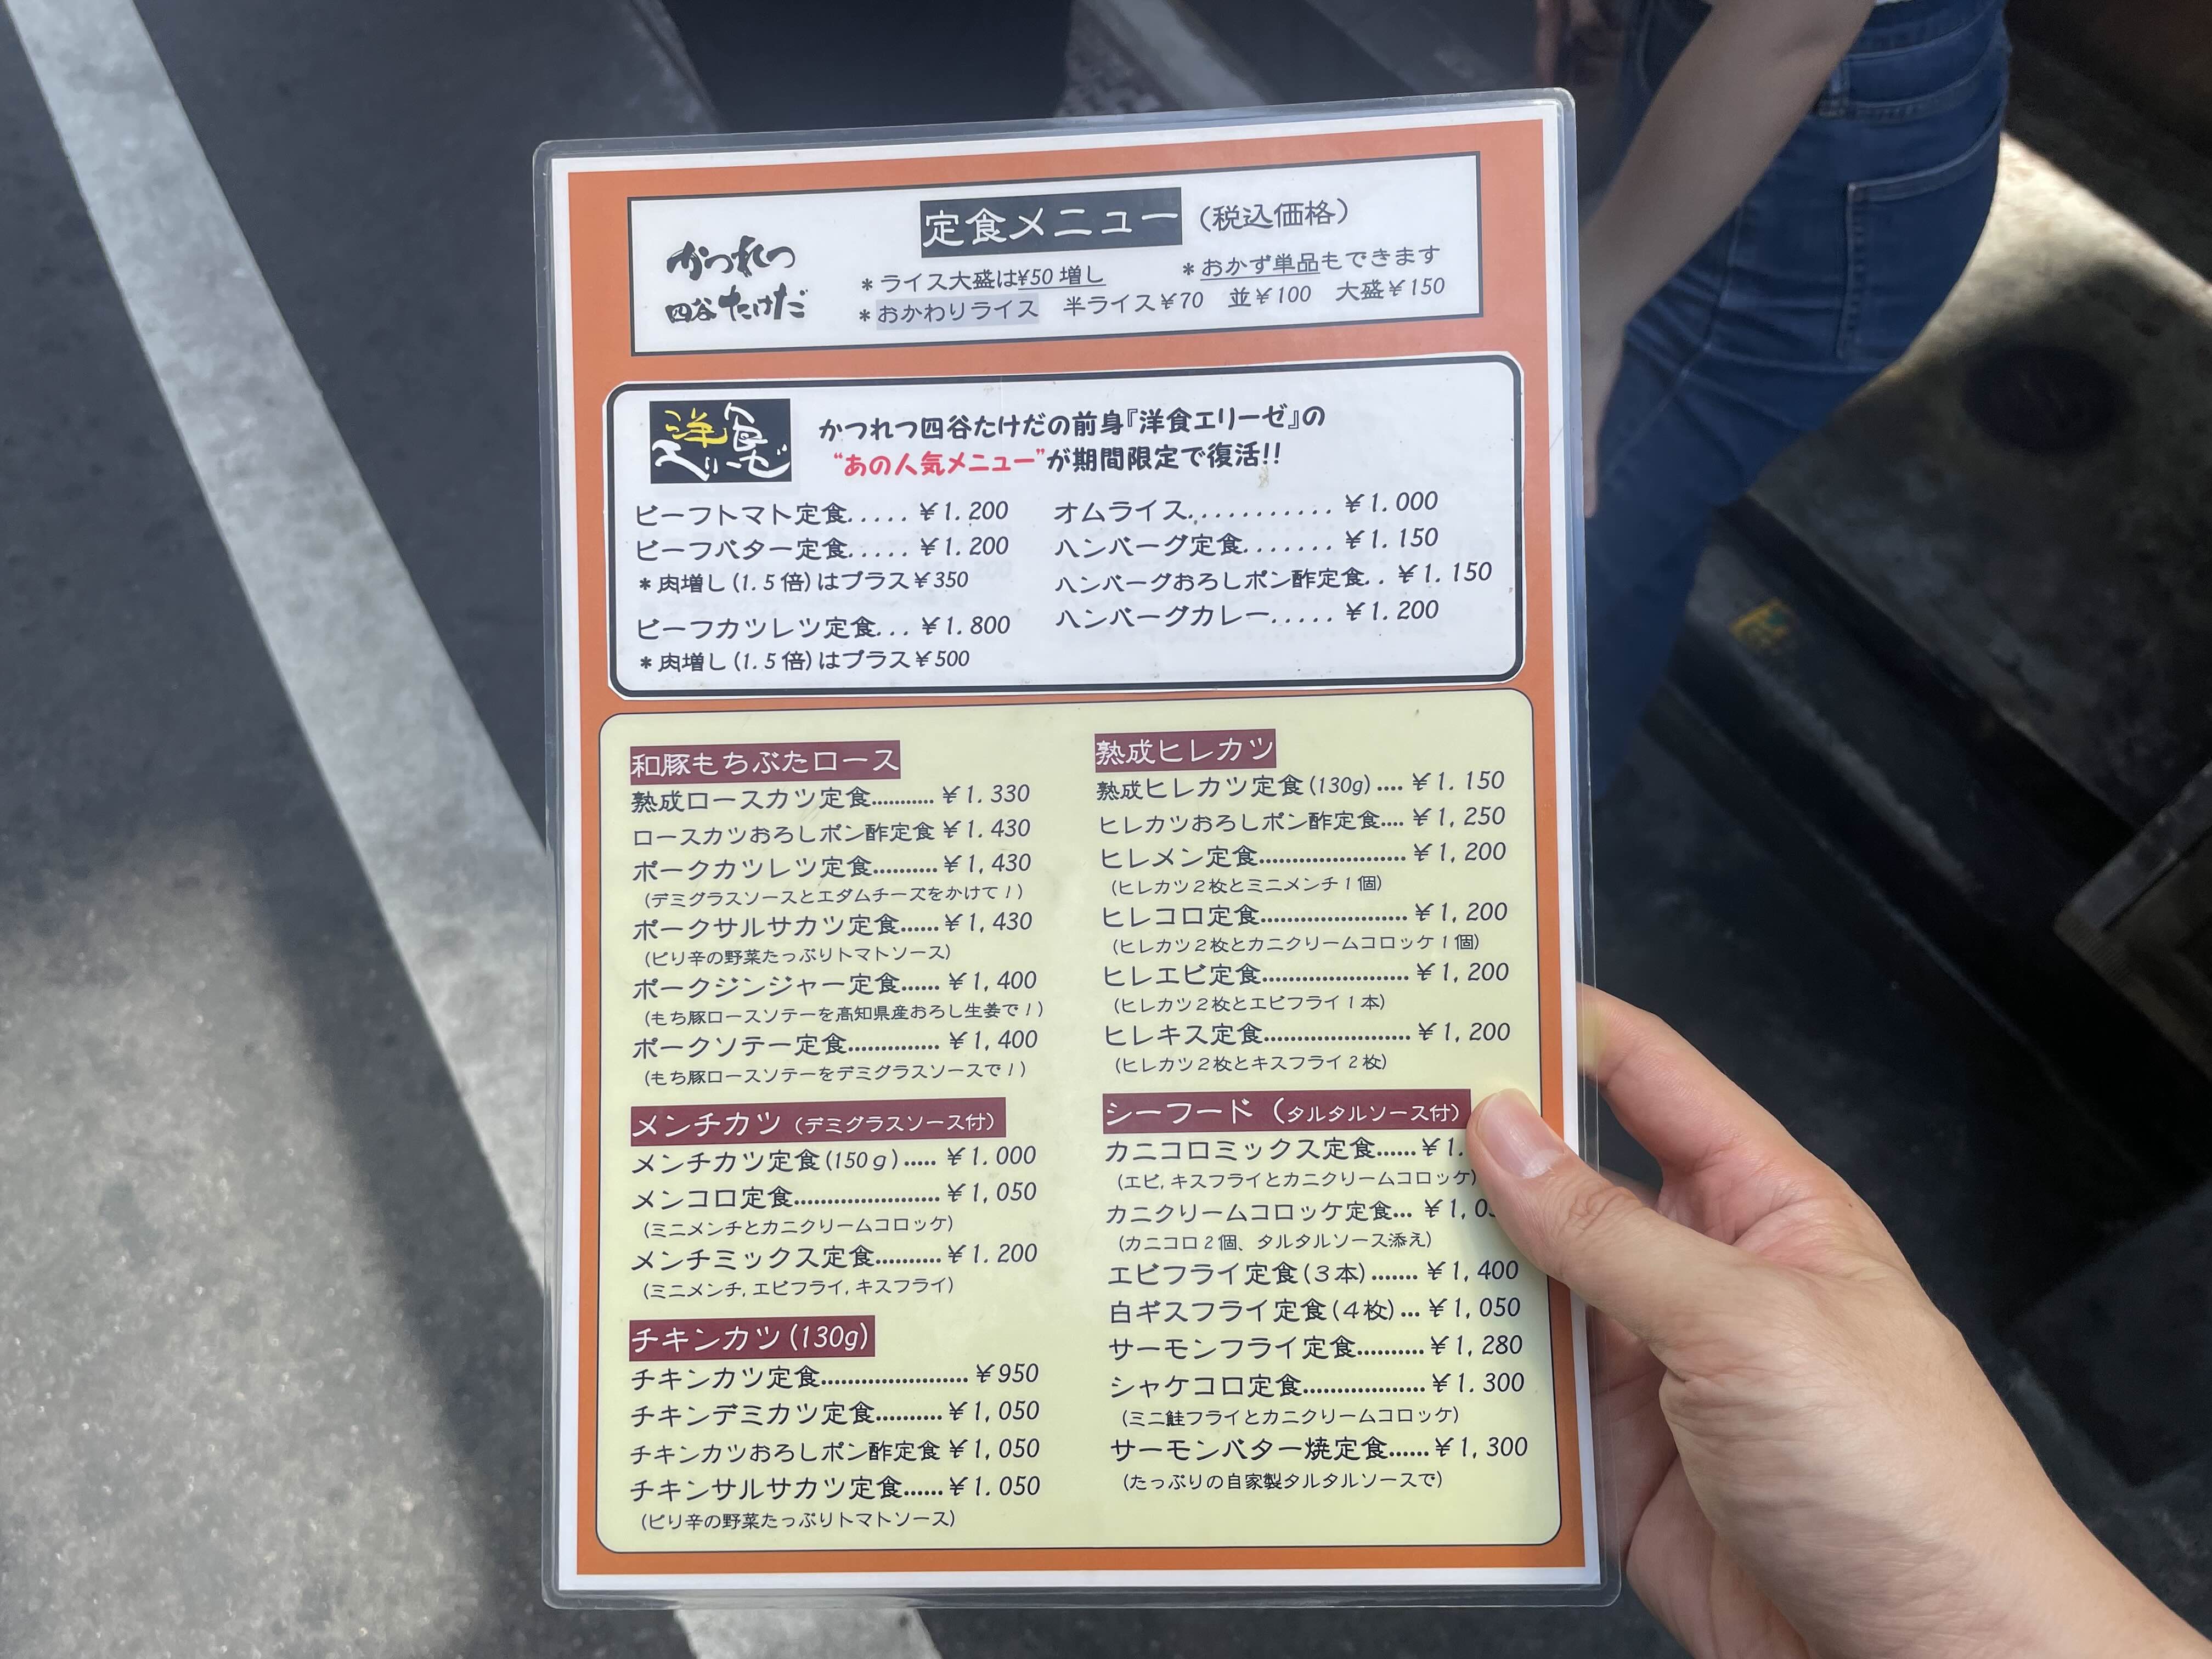 かつれつ
四谷たけだ
定食メニュー (税込価格)
＊ライス大盛は¥50増し ＊おかず単品もできます
＊おかわりライス 半ライス¥70 並¥100 大盛¥150
洋食
えりーぜ
かつれつ四谷たけだの前身『洋食エリーゼ』の
“あの人気メニュー”が期間限定で復活!!
ビーフトマト定食..... ¥1.200
ビーフバター定食..... ¥1.200
＊肉増し(1.5倍)はプラス¥350
ビーフカツレツ定食... ¥1.800
＊肉増し(1.5倍)はプラス¥500
オムライス........... ¥1.000
ハンバーグ定食....... ¥1.150
ハンバーグおろしポン酢定食.. ¥1.150
ハンバーグカレー..... ¥1.200
和豚もちぶたロース
熟成ロースカツ定食........... ¥1.330
ロースカツおろしポン酢定食 ¥1.430
ポークカツレツ定食.......... ¥1,430
(デミグラスソースとエダムチーズをかけて！)
ポークサルサカツ定食...... ¥1,430
(ピリ辛の野菜たっぷりトマトソース)
ポークジンジャー定食...... ¥1,400
(もち豚ロースソテーを高知県産おろし生姜で！)
ポークソテー定食.............. ¥1,400
(もち豚ロースソテーをデミグラスソースで！)
メンチカツ (デミグラスソース付)
メンチカツ定食(150g)..... ¥1.000
メンコロ定食...................... ¥1,050
(ミニメンチとカニクリームコロッケ)
メンチミックス定食.......... ¥1.200
(ミニメンチ,エビフライ,キスフライ)
チキンカツ(130g)
チキンカツ定食...................... ¥950
チキンデミカツ定食.......... ¥1,050
チキンカツおろしポン酢定食 ¥1,050
チキンサルサカツ定食...... ¥1.050
(ピリ辛の野菜たっぷりトマトソース)
熟成ヒレカツ
熟成ヒレカツ定食(130g).... ¥1.150
ヒレカツおろしポン酢定食.... ¥1,250
ヒレメン定食...................... ¥1,200
(ヒレカツ2枚とミニメンチ1個)
ヒレコロ定食...................... ¥1,200
(ヒレカツ2枚とカニクリームコロッケ1個)
ヒレエビ定食...................... ¥1,200
(ヒレカツ2枚とエビフライ1本)
ヒレキス定食...................... ¥1,200
(ヒレカツ2枚とキスフライ2枚)
シーフード (タルタルソース付)
カニコロミックス定食...... ¥1.
(エビ,キスフライとカニクリームコロッケ)
カニクリームコロッケ定食... ¥1,0
(カニコロ2個、タルタルソース添え)
エビフライ定食(3本)....... ¥1,400
白ギスフライ定食(4枚)... ¥1,050
サーモンフライ定食.......... ¥1,280
シャケコロ定食.................. ¥1.300
(ミニ鮭フライとカニクリームコロッケ)
サーモンバター焼定食...... ¥1,300
(たっぷりの自家製タルタルソースで)